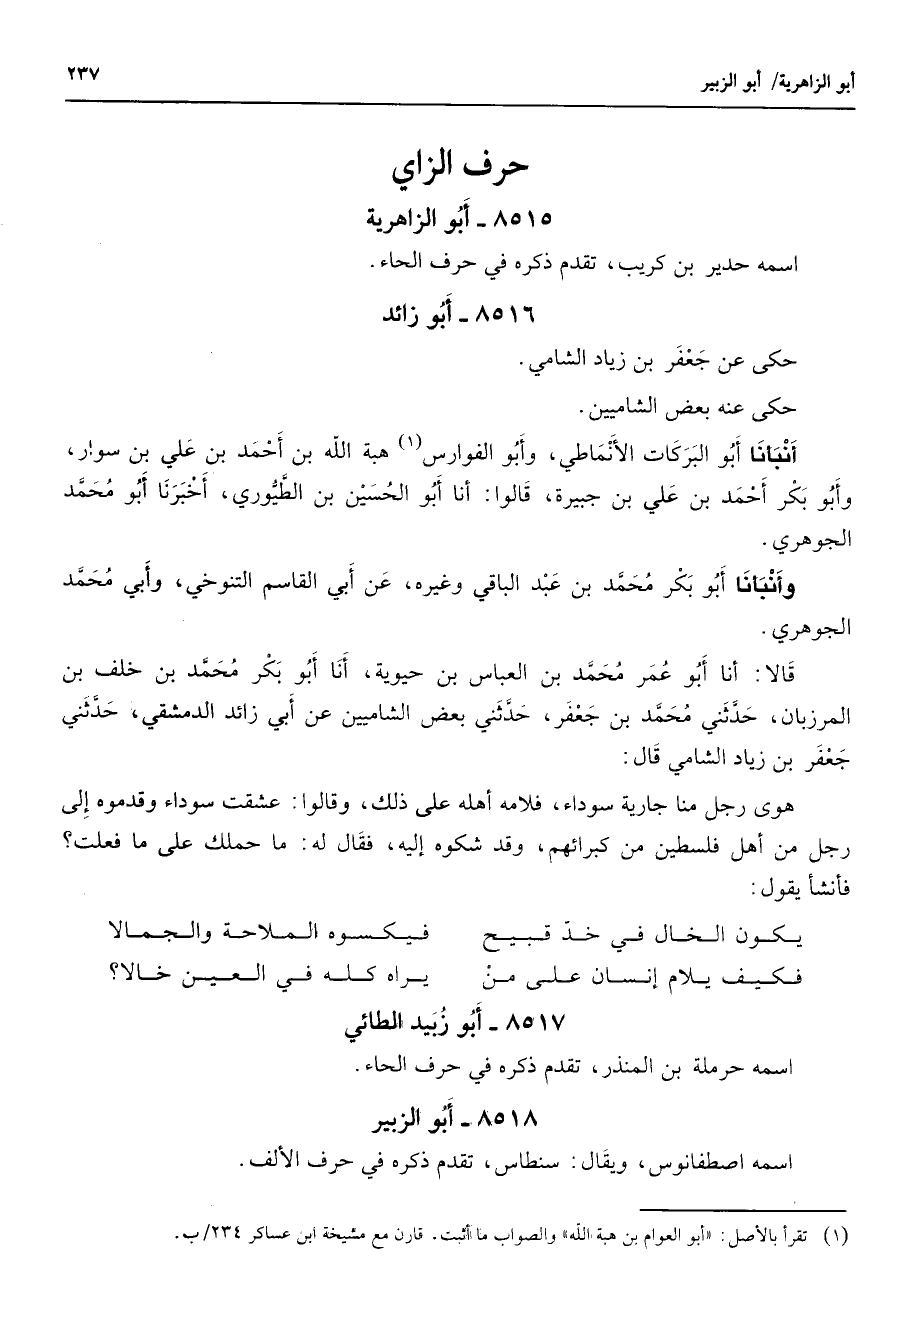 أبو الزاهرية/ أبو الزبير ٢٣٧
حرف الزاي
٨٥١٥ ـ أَبُو الزاهرية
اسمه حدير بن كريب، تقدم ذكره في حرف الحاء.
٨٥١٦ ـ أَبُو زائد
حكى عن جَعْفَر بن زياد الشامي.
حكى عنه بعض الشاميين.
أَنْبَانَا أَبُو البَرَكَات الأَنْمَاطي، وأَبُو الفوارس(١) هبة الله بن أَحْمَد بن عَلي بن سوار،
وأَبُو بَكْر أَحْمَد بن علي بن جبيرة، قَالوا: أنا أَبُو الحُسَيْن بن الطُّيُوري، أَخْبَرَنَا أَبُو مُحَمَّد
الجوهري.
وأَنْبَانَا أَبُو بَكْر مُحَمَّد بن عَبْد الباقي وغيره، عَن أَبي القاسم التنوخي، وأَبي مُحَمَّد
الجوهري.
قَالا: أنا أَبُو عُمَر مُحَمَّد بن العباس بن حيوية، أَنَا أَبُو بَكْر مُحَمَّد بن خلف بن
المرزبان، حَدَّثَني مُحَمَّد بن جَعْفَر، حَدَّثَني بعض الشاميين عن أَبي زائد الدمشقي، حَدَّثَني
جَعْفَر بن زياد الشامي قَال:
هوى رجل منا جارية سوداء، فلامه أهله على ذلك، وقالوا: عشقت سوداء وقدموه إلى
رجل من أهل فلسطين من كبرائهم، وقد شكوه إليه، فقَال له: ما حملك على ما فعلت؟
فأنشأ يقول:
يكون الخال في خدّ قبيح فيكسوه الملاحة والجمالا
فكيف يلام إنسان على منْ يراه كله في العين خالا؟
٨٥١٧ ـ أَبُو زُبَيد الطائي
اسمه حرملة بن المنذر، تقدم ذكره في حرف الحاء.
٨٥١٨ ـ أَبُو الزبير
اسمه اصطفانوس، ويقَال: سنطاس، تقدم ذكره في حرف الألف.
(١) تقرأ بالأصل: «أبو العوام بن هبة الله» والصواب ما أثبت. قارن مع مشيخة ابن عساكر ٢٣٤/ب.